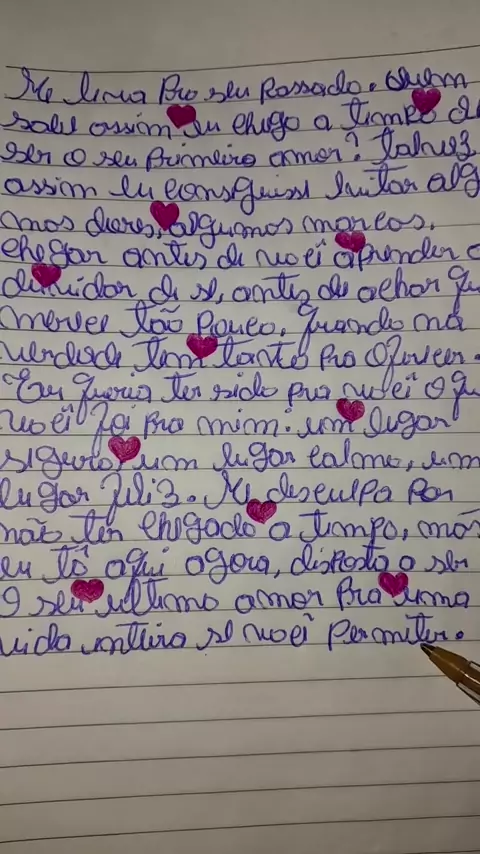 Me leva pro seu passado. Quem
sabe assim eu chego a tempo de
ser o seu primeiro amor? Talvez
assim eu conseguisse evitar alg
mas dores, algumas marcas.
Chegar antes de você aprender a
duvidar de si, antes de achar qu
merece tão pouco, quando na
verdade, tem tanto pra oferecer.
Eu queria ter sido pra você o qu
você foi pra mim: um lugar
seguro, um lugar calmo, um
lugar feliz. Me desculpa por
não ter chegado a tempo, mas
eu tô aqui agora, disposto a ser
o seu último amor pra uma
vida inteira se você permitir.